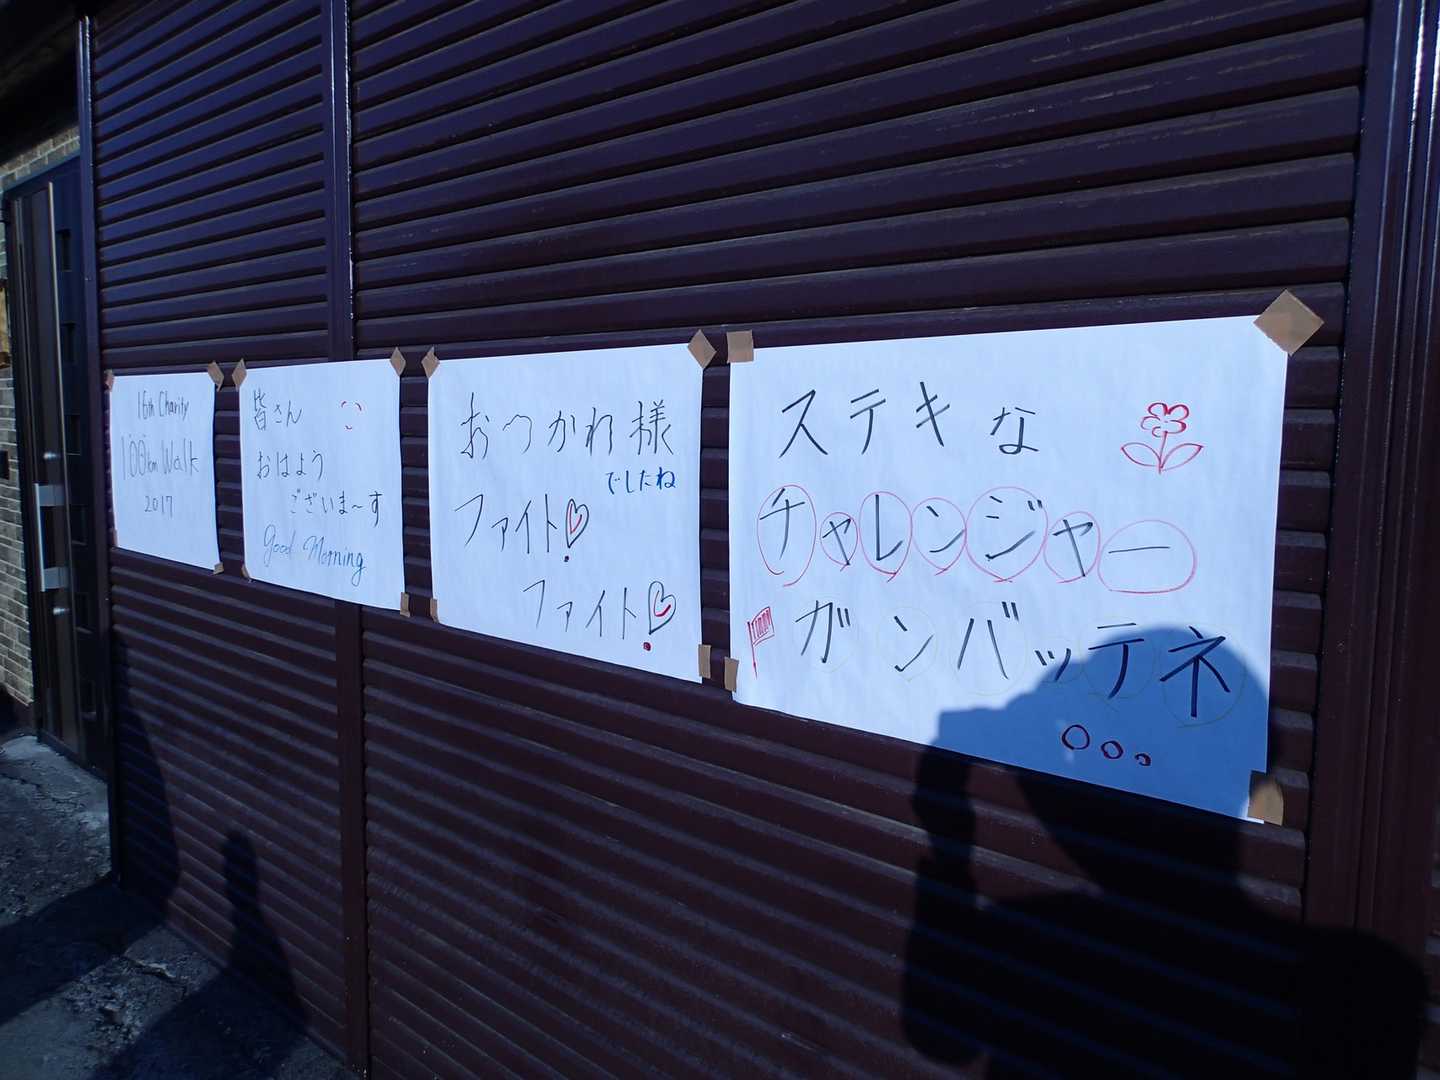 16th Charity
100km Walk
2017
皆さん
おはよう
ございま〜す
Good Morning
おつかれ様
でしたね
ファイト
ファイト
ステキな
チャレンジャー
ガンバッテネ